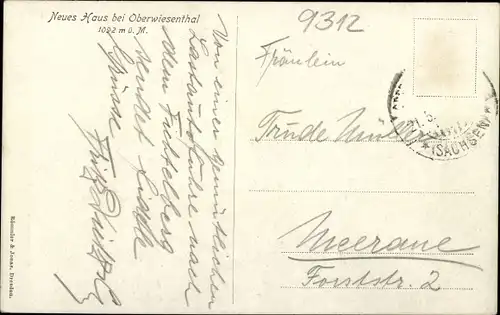 Neues Haus bei Oberwiesenthal
1092 m ü. M.
9312
Fräulein
Trude Müller
Meerane
Forststr. 2
(SACHSEN)
21.5.
Von einer gemütlichen
Lastautofahrt nach
dem Fichtelberg
sendet
Grüße
Fritz
Römmler & Jonas, Dresden.